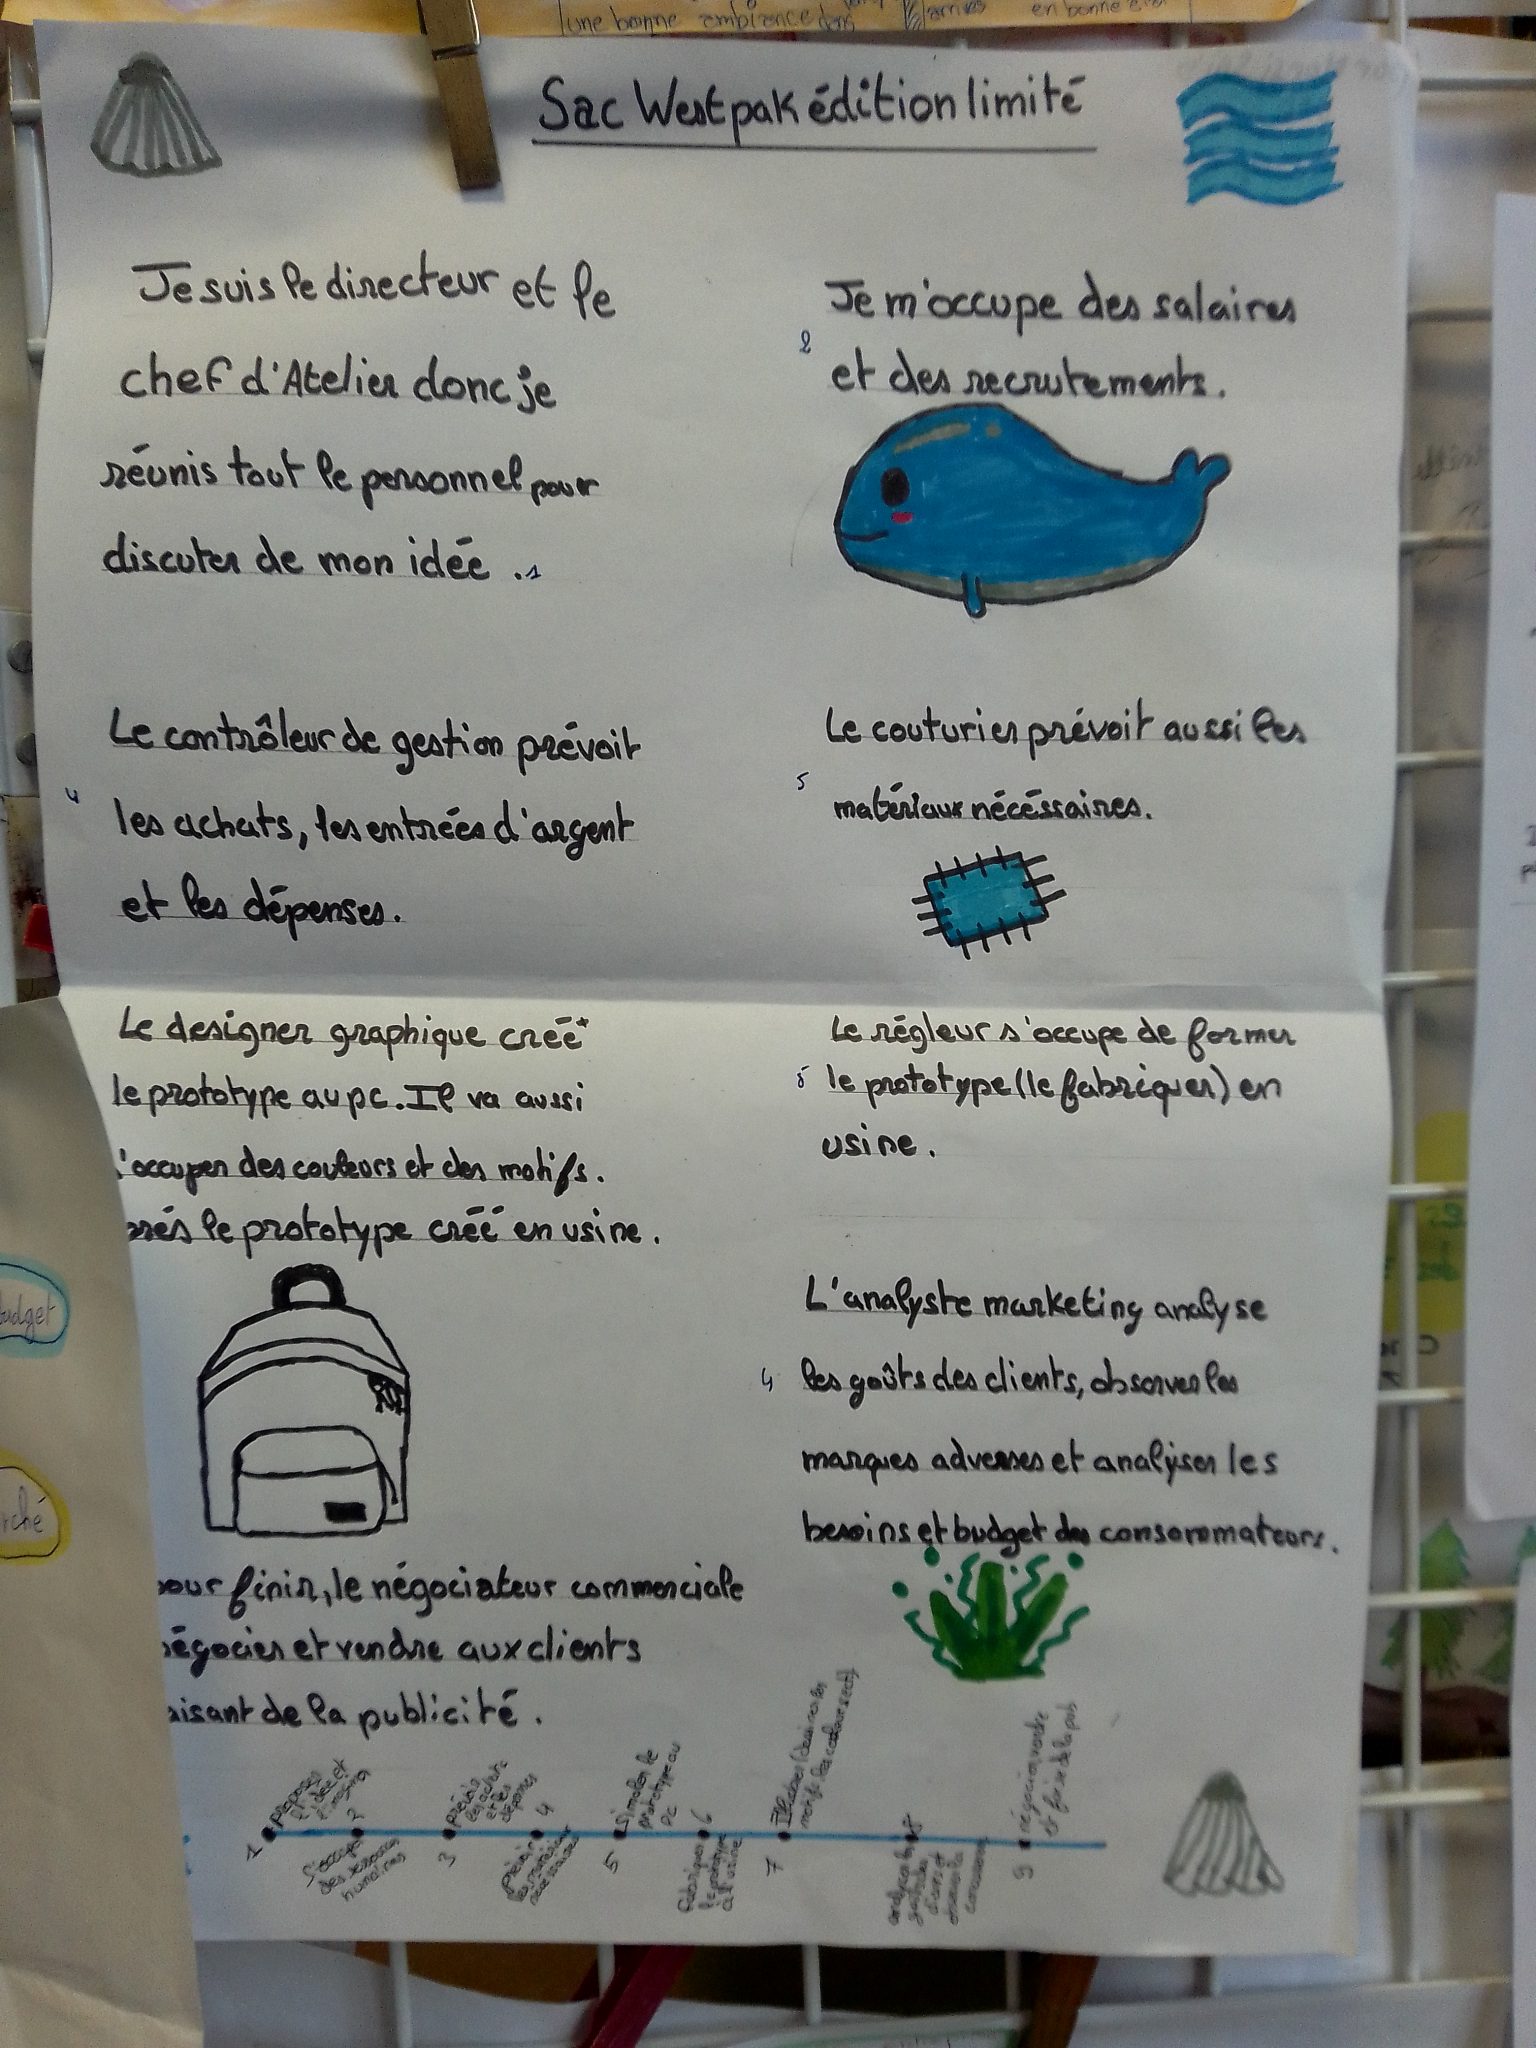 une bonne ambience dans
en bonne
Sac Westpak édition limité
Je suis le directeur et le
chef d'Atelier donc je
réunis tout le personnel pour
discuter de mon idée . 1
Je m'occupe des salaires
2
et des recrutements.
Le contrôleur de gestion prévoit
4
les achats, les entrées d'argent
et les dépenses.
Le couturier prévoit aussi les
5
matériaux nécéssaires.
Le designer graphique créé
le prototype au pc. Il va aussi
s'occuper des couleurs et des motifs.
le prototype créé en usine.
Le régleur s'occupe de former
le prototype (le fabriquer) en
usine.
L'analyste marketing analyse
4
les goûts des clients, observer les
marques adverses et analyser les
besoins et budget des consommateurs.
pour finir, le négociateur commerciale
négocier et vendre aux clients
de la publicité.
1
proposer
l'idée et
2
S'occuper
des
humaines
3
prévoir
les achats
et les
dépenses
4
prévoir
les matériaux
nécessaires
5
Simuler le
prototype au
Pc
6
fabriquer
le prototype
à l'usine
7
motifs les couleurs ect)
8
9
négocier, vendre
et faire de la pub
budget
rché